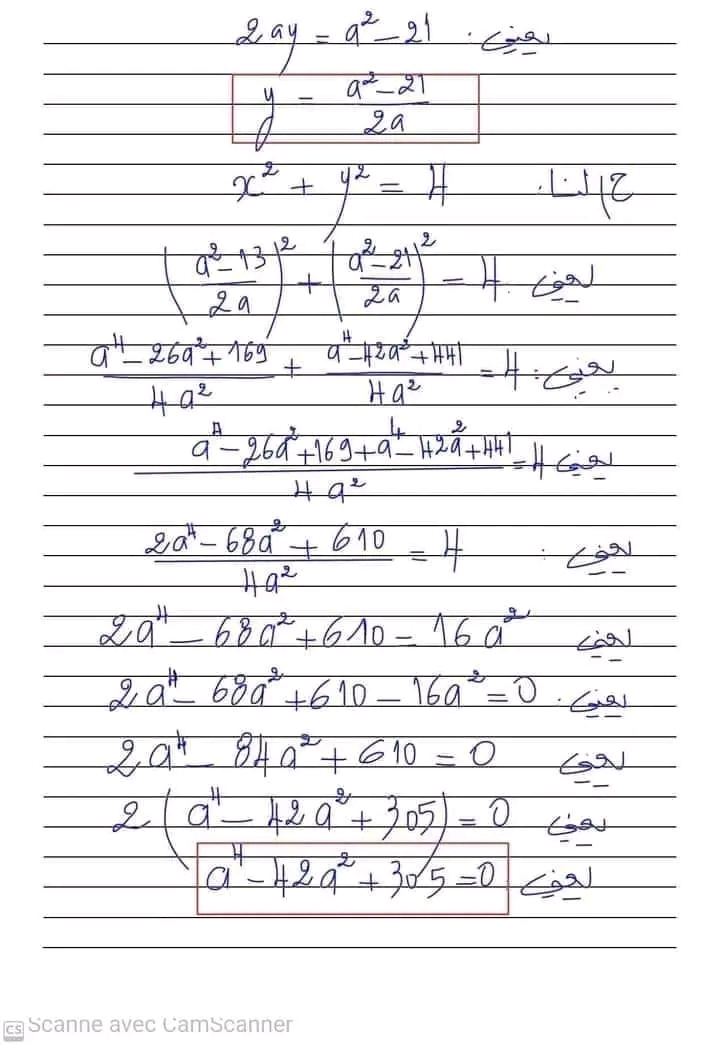 يعني: 2ay = a² - 21
y = (a² - 21)/(2a)
لنا: x² + y² = 4
يعني: ((a² - 13)/(2a))² + ((a² - 21)/(2a))² = 4
يعني: (a⁴ - 26a² + 169)/(4a²) + (a⁴ - 42a² + 441)/(4a²) = 4
يعني (a⁴ - 26a² + 169 + a⁴ - 42a² + 441)/(4a²) = 4
يعني: (2a⁴ - 68a² + 610)/(4a²) = 4
يعني 2a⁴ - 68a² + 610 = 16a²
يعني: 2a⁴ - 68a² + 610 - 16a² = 0
يعني 2a⁴ - 84a² + 610 = 0
يعني 2(a⁴ - 42a² + 305) = 0
يعني a⁴ - 42a² + 305 = 0
CS Scanne avec CamScanner